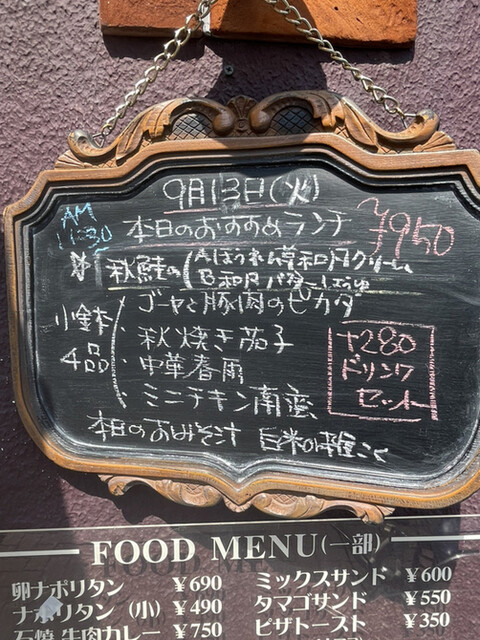 9月13日(火)
AM 11:30
本日のおすすめランチ
¥950
秋鮭の
Aほうれん草和風クリーム
B和風バターしょうゆ
小鉢
4品
ゴーヤと豚肉のピカタ
・秋焼き茄子
・中華春雨
・ミニチキン南蛮
+280
ドリンク
セット
本日のおみそ汁 白米
FOOD MENU(一部)
卵ナポリタン ¥690
ナポリタン (小) ¥490
石焼 牛肉カレー ¥750
ミックスサンド ¥600
タマゴサンド ¥550
ピザトースト ¥350